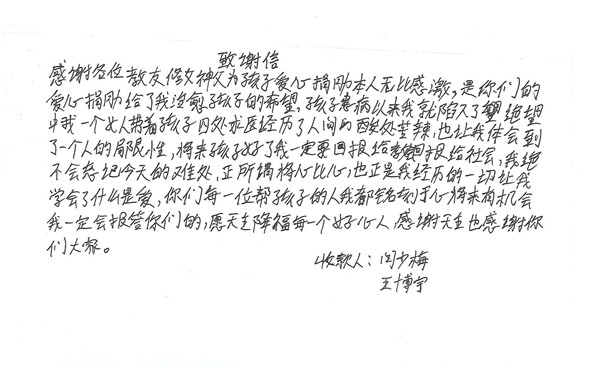 致谢信
感谢各位教友修女神父为孩子爱心捐助本人无比感激,是你们的
爱心捐助给了我治愈孩子的希望,孩子患病以来我就陷入了绝望
中我一个女人带着孩子四处求医经历了人间的酸苦辣,也让我体会到
了一个人的局限性,将来孩子好了我一定要回报给回报给社会,我绝
不会忘记今天的难处,正所谓将心比心,也正是我经历的一切让我
学会了什么是爱,你们每一位帮孩子的人我都会铭刻于心将来有机会
我一定会报答你们的,愿天主降福每一个好心人,感谢天主也感谢你
们大家。
收款人:闫少梅
王博宇